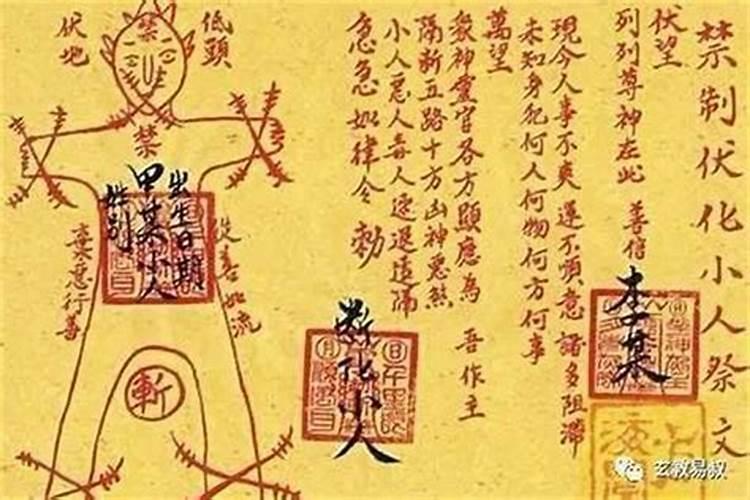 禁制伏化小人祭文
伏望
列列尊神在此 善信
李某
現今人事不爽 運不順意 諸多阻滯
未知身犯何人何物何方何事
萬望
眾神靈官各方顯應為 吾作主
隔斷五路十方凶神惡煞
小人惡人毒人速退遠隔
急急如律令 勅
斷化小人
低頭
伏地
禁
禁
出生日期
甲某小人
性别
從善如流
棄惡行善
斬
玄教易叔